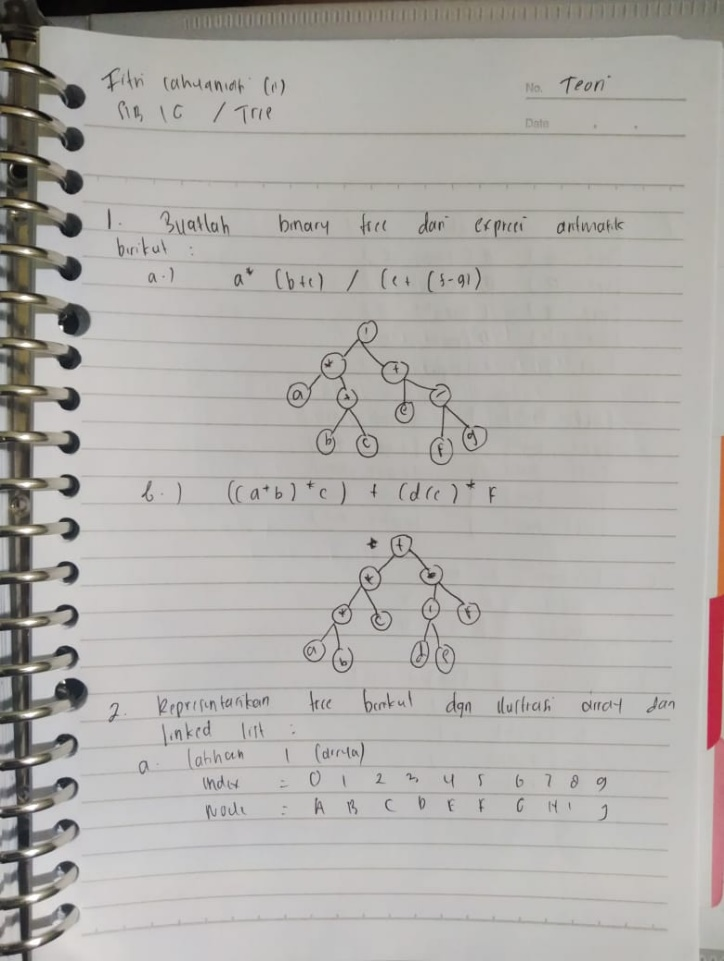 Fitri (11)
No. Teori
SIB 1C / Tree
Date . .
1. Buatlah binary tree dari expresi aritmatik
berikut :
a.) a* (b+c) / (e+ (f-g))
/
* +
a + e -
b c f g
b.) ((a+b) *c) + (d/e) * F
* +
* *
+ c / F
a b d e
2. Representasikan tree berikut dgn ilustrasi array dan
linked list :
a. latihan 1 (array)
index = 0 1 2 3 4 5 6 7 8 9
Node : A B C D E F G H I J